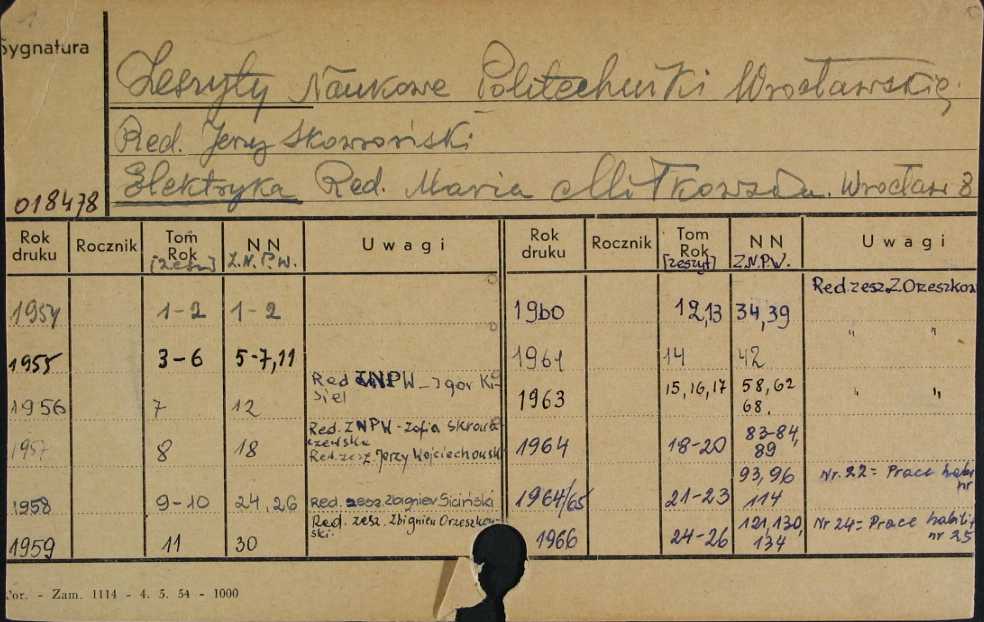 Sygnatura
Zeszyty Naukowe Politechniki Wrocławskiej.
Red. Jerzy Skowroński
Elektryka Red. Maria Miłkowska. Wrocław 8
018478
Rok druku Rocznik Tom Rok [zesz] NN Z.N.P.W. Uwagi Rok druku Rocznik Tom Rok [zeszyt] NN Z.N.P.W. Uwagi
1954 1-2 1-2
1955 3-6 5-7,11
1956 7 12 Red ZNPW - Igor Kisiel
1957 8 18 Red. ZNPW - Zofia Red. zesz Jerzy Wojciechowski
1958 9-10 24, 26 Red. zesz Zbigniew Siciński
1959 11 30 Red. zesz. Zbigniew Orzeszkowski.
1960 12,13 34,39 Red zesz Z. Orzeszkow
1961 14 42 " "
1963 15, 16, 17 58, 62 68. " "
1964 18-20 83-84, 89
1964/65 21-23 93,96 114 Nr. 22 = Prace habi nr
1966 24-26 121,130, 134 Nr 24 = Prace habili nr 25
or. - Zam. 1114 - 4. 5. 54 - 1000